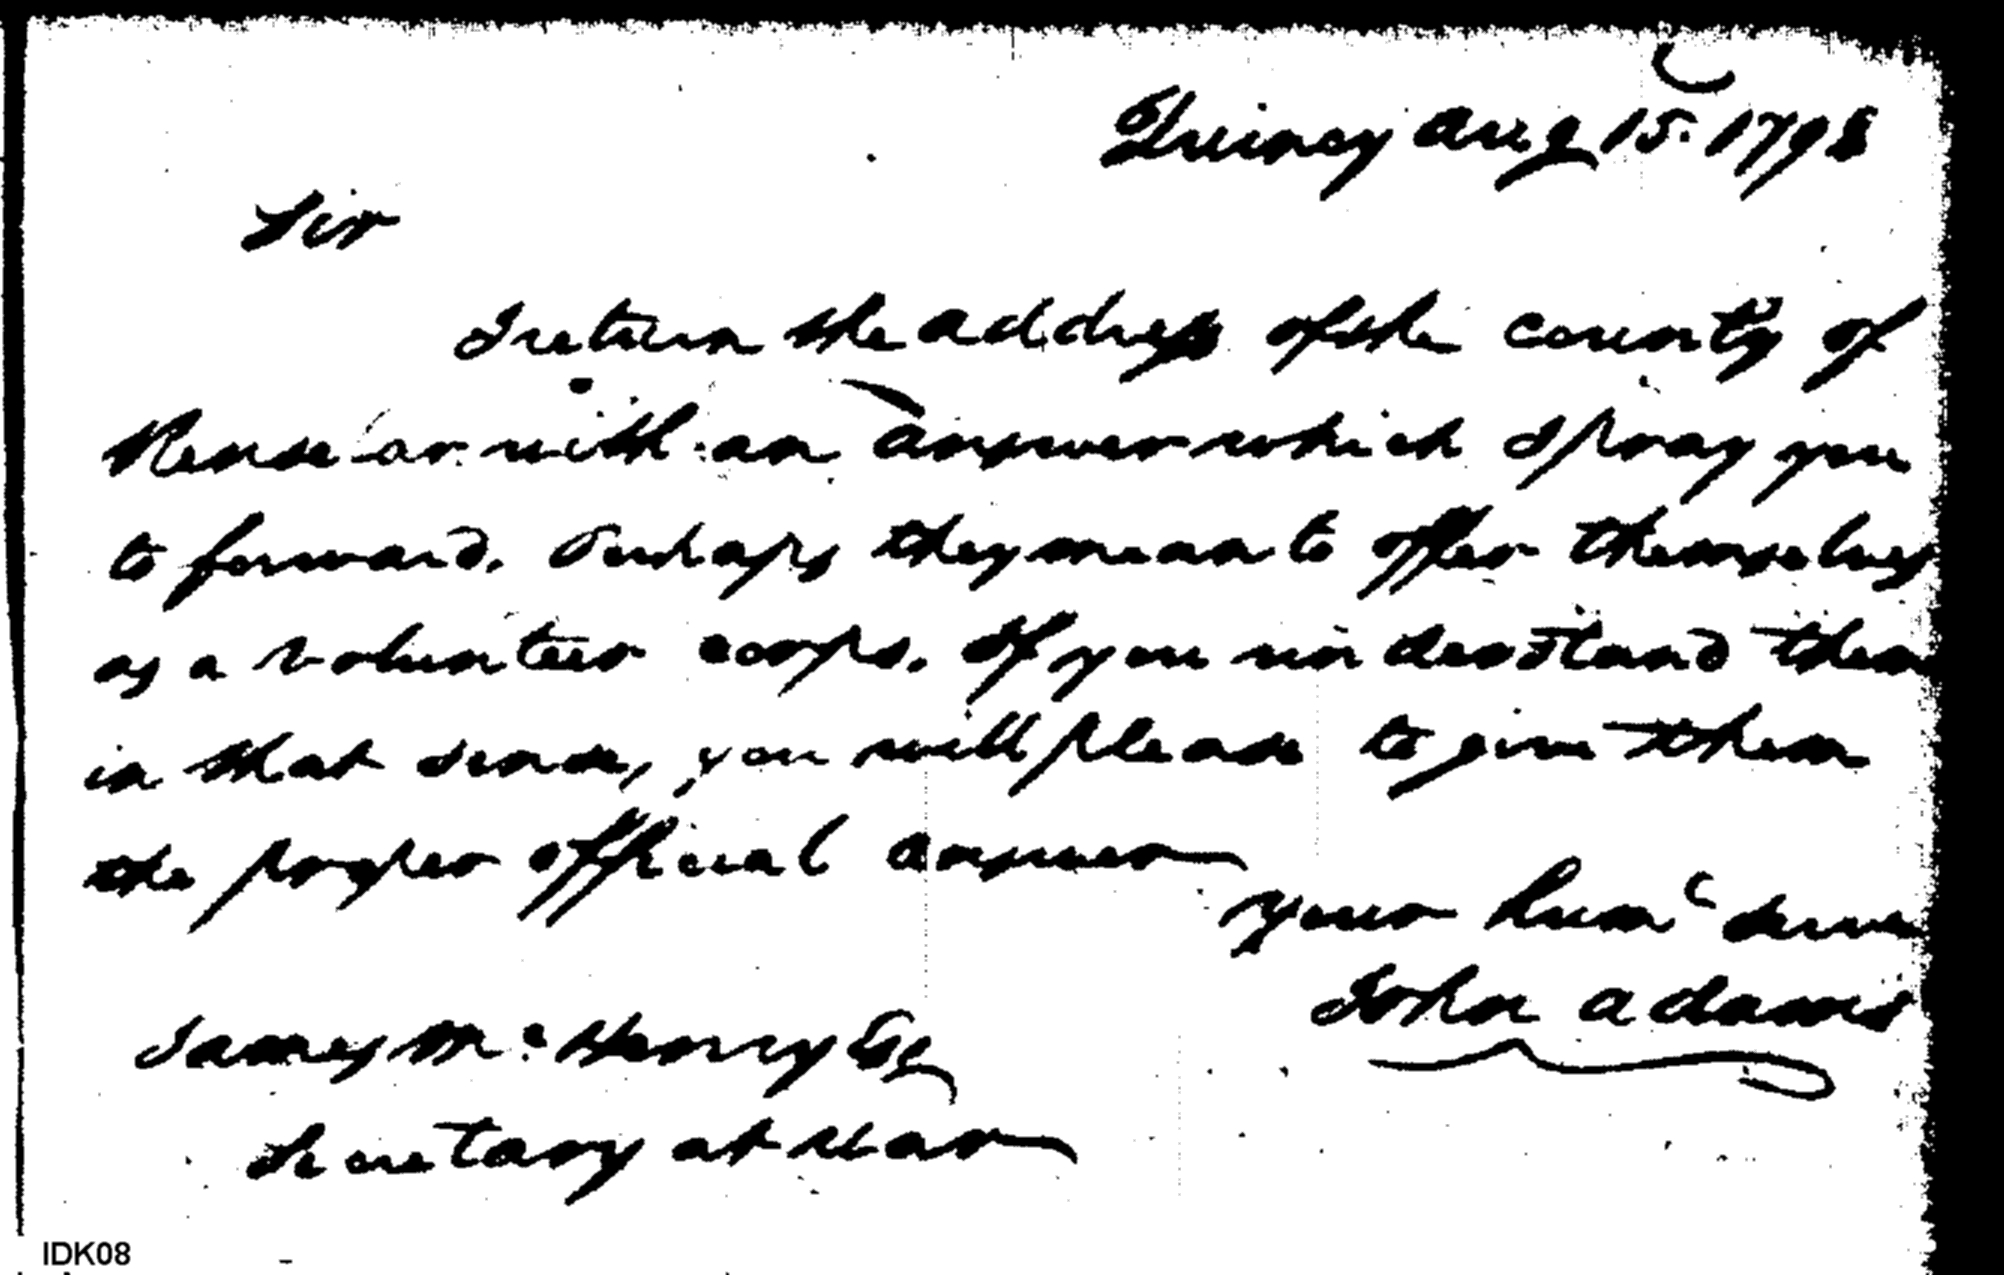 Quincy Aug 15. 1798
Sir
I return the address of the county of
with an answer which I pray you
to forward. Perhaps they mean to offer themselves
as a volunteer corps. If you understand them
in that sense, you will please to give them
the proper official answer
your hum
John Adams
James McHenry Esq
Secretary at War
IDK08